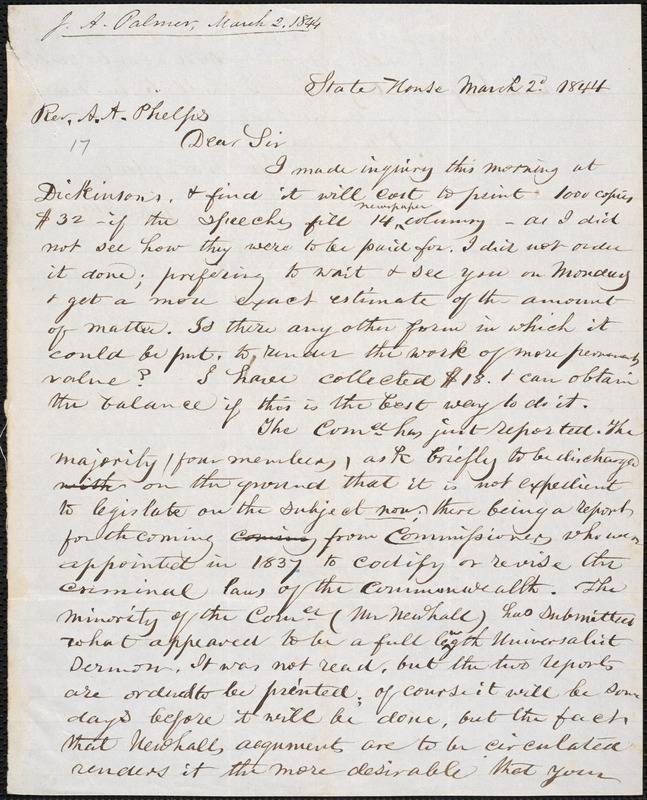 J. A. Palmer, March 2, 1844
State House March 2d 1844
Rev. A. A. Phelps
17
Dear Sir
I made inquiry this morning at
Dickinson's, & find it will cost to print 1000 copies
$32 - if the speeches fill 14 newspaper columns - as I did
not see how they were to be paid for. I did not order
it done; prefering to wait & see you on Monday
& get a more exact estimate of the amount
of matter. Is there any other form in which it
could be put, to render the work of more permanent
value? I have collected $18. & can obtain
the balance if this is the best way to do it.
The Comee has just reported. The
majority (four members) ask briefly to be discharged
with on the ground that it is not expedient
to legislate on the subject now. there being a report
forthcoming coming from Commissioners who were
appointed in 1837 to codify or revise the
criminal laws of the Commonwealth. The
minority of the Comee (Mr Newhall) has submitted
what appeared to be a full length Universalist
Sermon. It was not read, but the two reports
are ordered to be printed; of course it will be some
days before it will be done, but the fact
that Newhalls arguments are to be circulated
renders it the more desirable that your